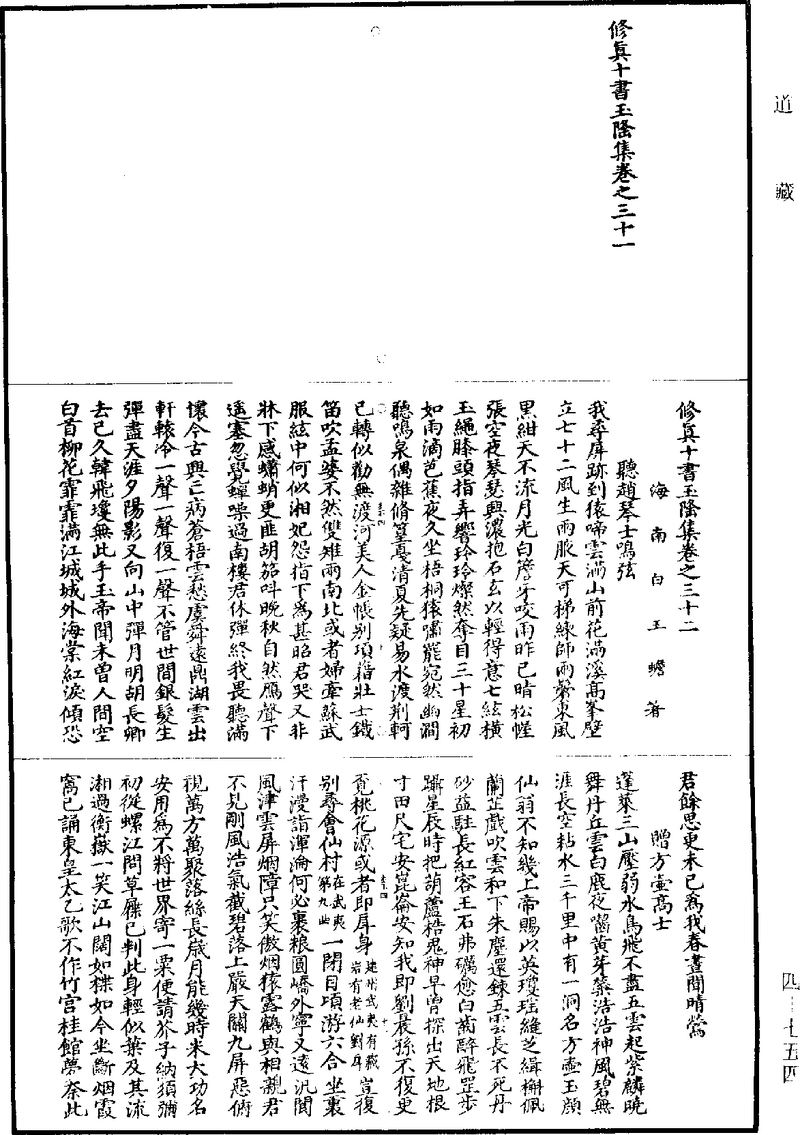 道藏
修真十書玉隆集卷之三十一
修真十書玉隆集卷之三十二
海南白玉蟾著
聽趙琴士鳴弦
我尋屏跡到猿啼雲滿山前花滿溪高峯壁
立七十二風生雨腋天可梯練師雨鬢東風
黑紺天不流月光白簷牙咬雨昨已晴松恠
張空夜琴瑟興濃抱石玄以輕得意七絃橫
玉繩膝頭指弄響玲玲燦然奪目三十星初
如雨滴芭蕉夜久坐梧桐猿嘯罷宛然幽澗
聽鳴泉偶雜脩篁戛清夏先疑易水渡荆軻
已轉似勸無渡河美人金帳别項籍壯士鐵
笛吹孟婆不然雙雉兩南北或者婦牽蘇武
服絃中何似湘妃怨指下為甚昭君哭又非
牀下感蠨蛸更匪胡笳呌晩秋自然鴈聲下
遥塞忽覺蟬噪過南樓君休彈終我畏聽滿
懷今古興亡病蒼梧雲愁虞舜遠鼎湖雲出
軒轅冷一聲一聲復一聲不管世間銀髮生
彈盡天涯夕陽影又向山中彈月明胡長卿
去已久韓飛瓊無此手玉帝聞未曾人間空
白首柳花霏霏滿江城城外海棠紅淚傾恐
君餘思更未已為我春晝間晴鶯
贈方壺高士
蓬萊三山壓弱水鳥飛不盡五雲起紫麟曉
舞丹丘雲白鹿夜齧黃芽蘂浩浩神風碧無
涯長空粘水三千里中有一洞名方壺玉顔
仙翁不知幾上帝賜以英瓊瑶縫芝緝槲佩
蘭芷戲吹雲和下朱塵還鍊五雲長不死丹
砂益駐長紅容王石弗礪愈白齒醉飛罡步
躡星辰時把葫蘆梏鬼神早曽探出天地根
寸田尺宅安崑崙安知我即劉晨孫不復更
覓桃花源或者即屏身建州武夷有藏岩有老仙劉屏豈復
别尋會仙村在武夷第九曲一閉目頃游六合坐裏
汗漫詣渾淪何必裹粮圓嶠外寧又遠汎閬
風津雲屏烟障只笑傲烟猿露鶴與相親君
不見剛風浩氣截碧落上嚴天關九屏惡俯
視萬方萬聚落絲長歲月能幾時米大功名
安用為不將世界寄一粟便請芥子納須彌
初從螺江問草屩已判此身輕似葉及其流
湘過衡嶽一笑江山闊如楪如今坐斷烟霞
窩已誦東皇太乙歌不作竹宮桂館夢柰此
四—七五四